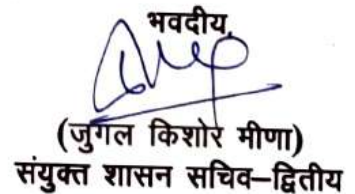 भवदीय,
(जुगल किशोर मीणा)
संयुक्त शासन सचिव–द्वितीय